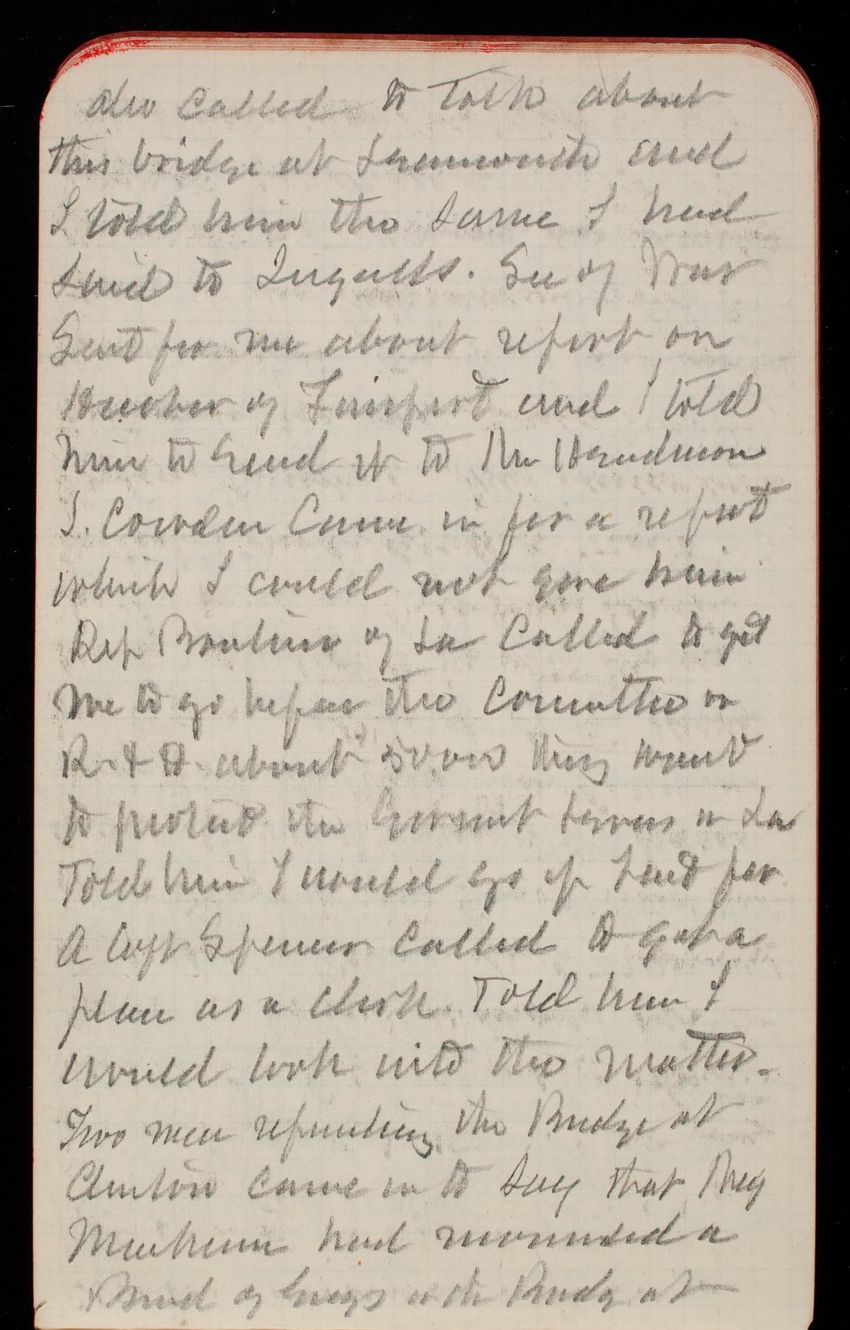 also called to talk about
this bridge at Leavenworth and
I told him the same I had
said to Ingalls. Sec of War
Sent for me about report on
Harbor of Fairport and I told
him to send it to Mr Henderson
S. Cowden Came in for a report
which I could not give him
Rep Boatner of La Called to get
me to go before the Committee on
R & H about they want
to protect the Govmnt levees in La
Told him I would go if sent for
A Capt Spencer called to get a
place as a clerk. Told him I
would look into the matter.
Two men representing the Bridge at
Clinton came in to say that they
Meekham had a
Board of Engs on the Bridge at